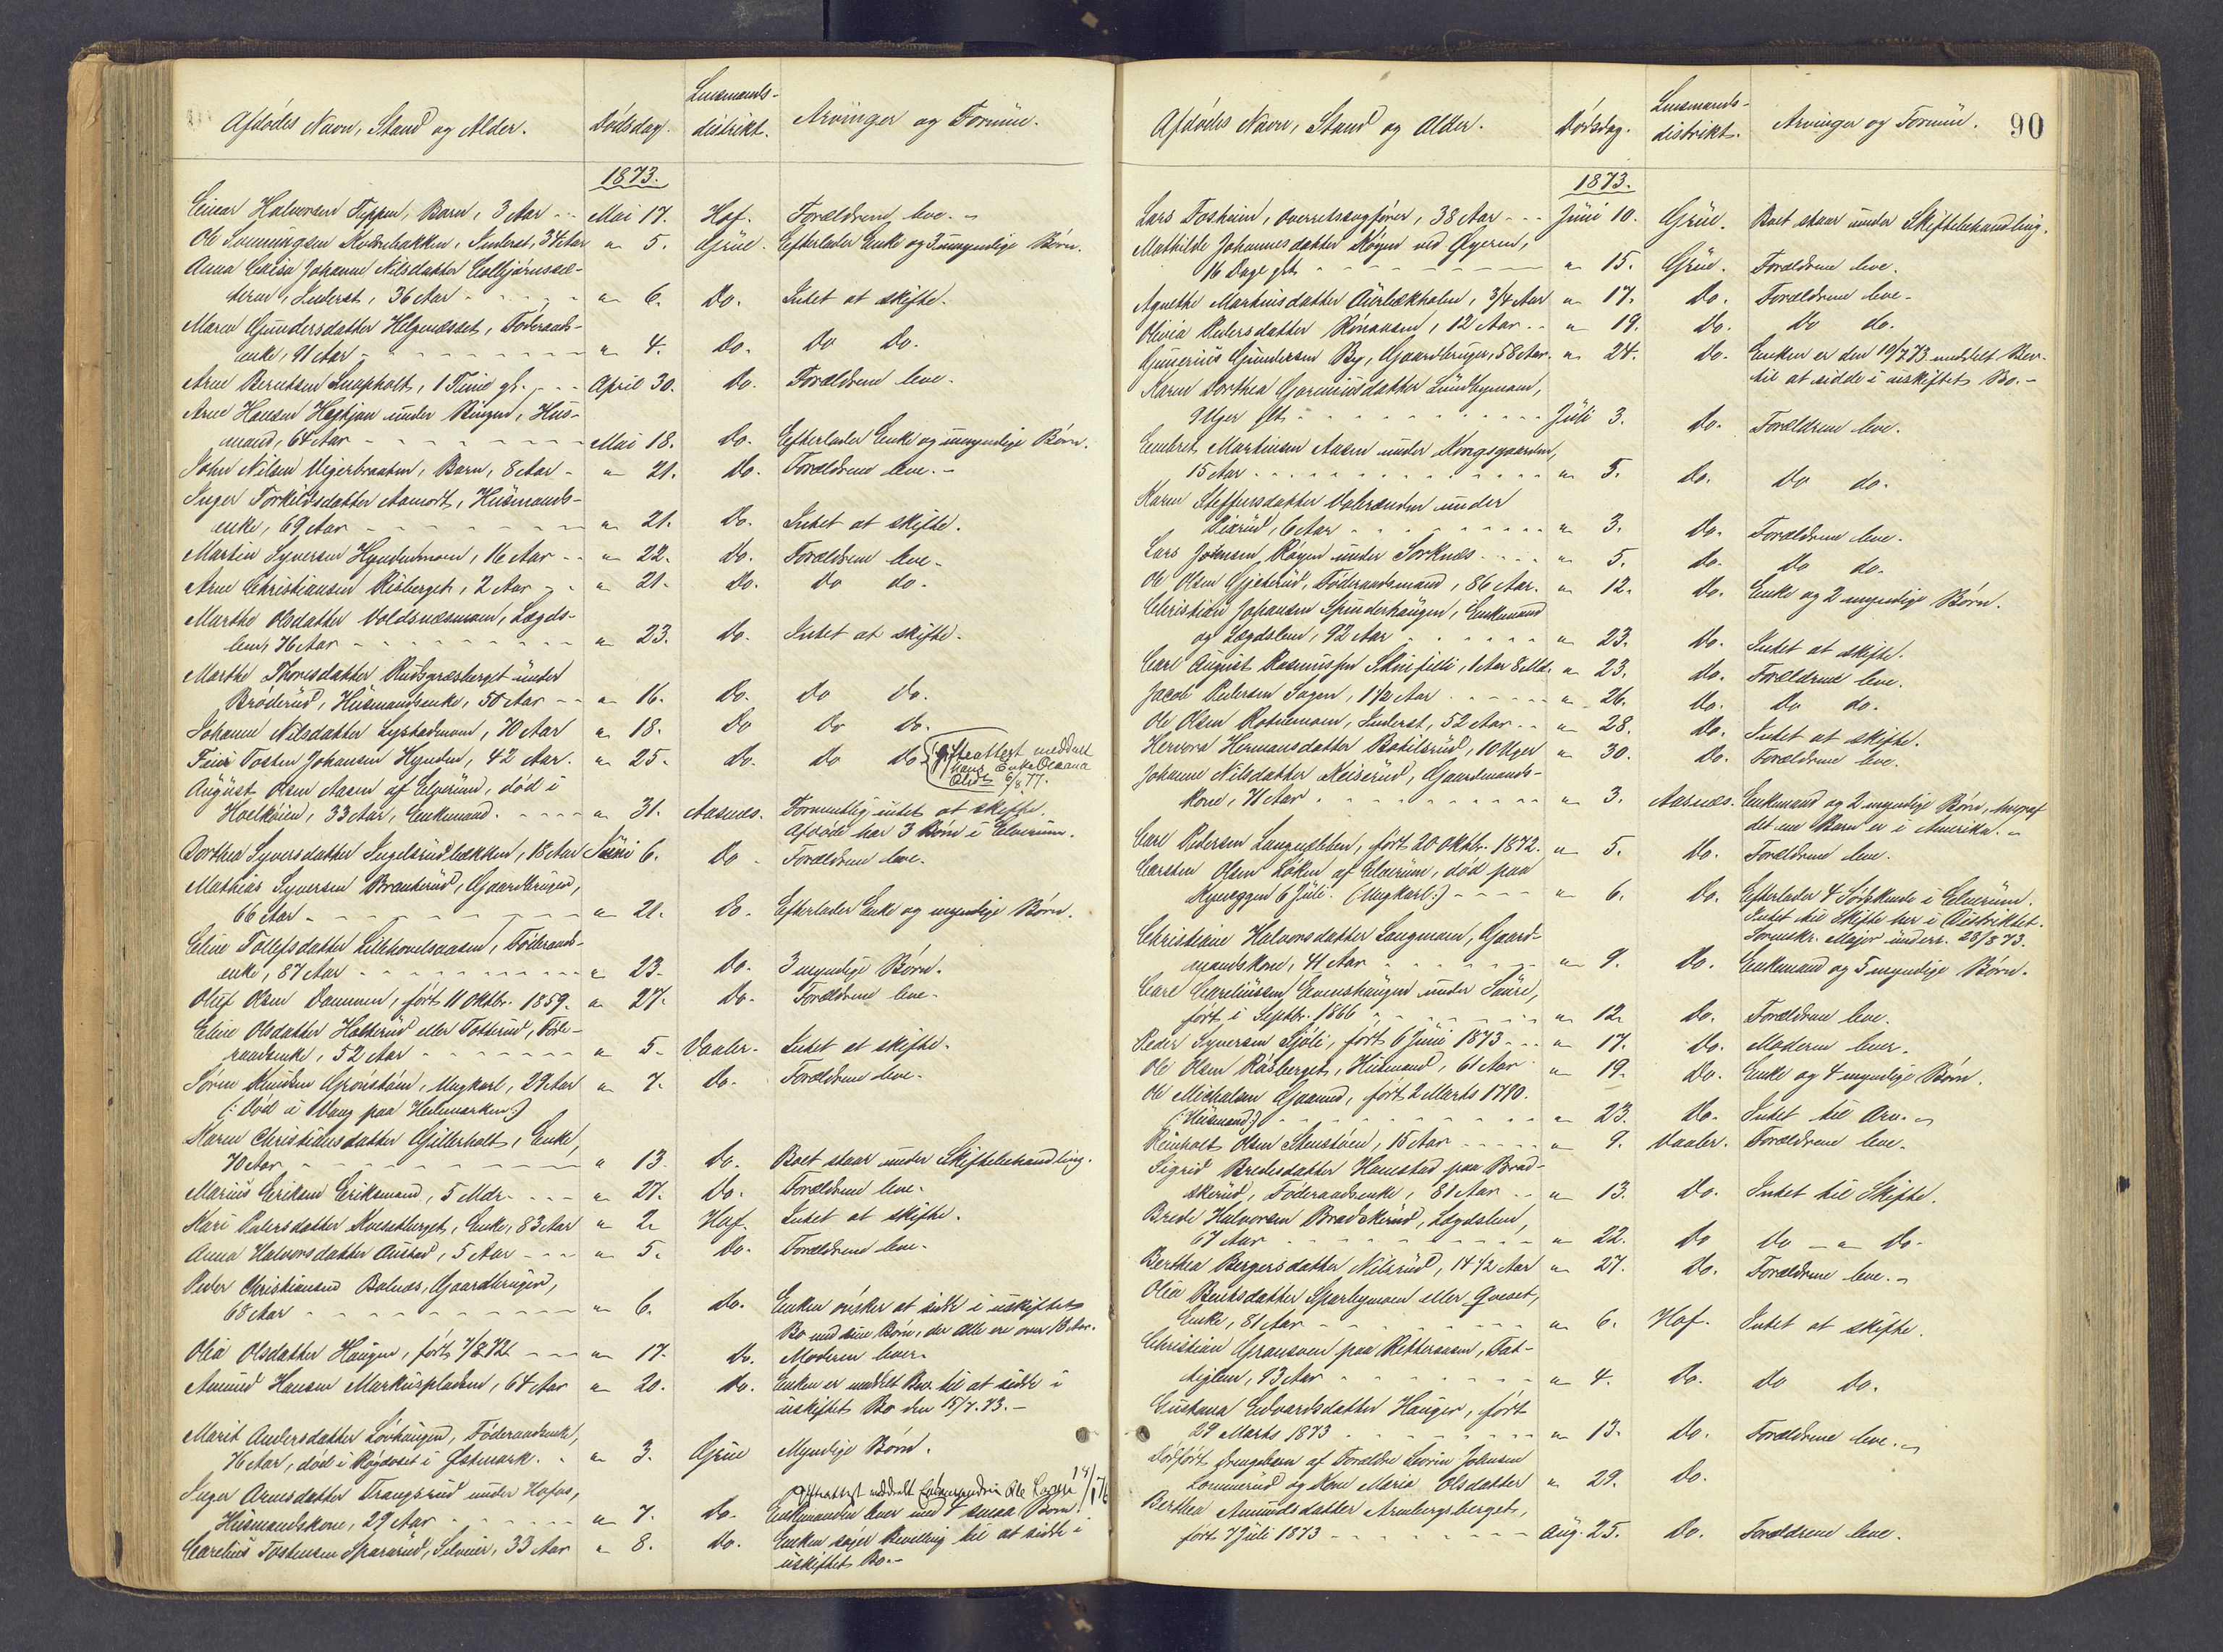 Afdødes Navn, Stand og Alder. Dødsdag. Lensmands-distrikt. Arvinger og Formue.
1873.
Einar Halvorsen Teppen, Barn, 3 Aar - - Mai 17. Hof. Forældrene leve. -
Ole Svenningsen, Inderst, 34 Aar " 5. Grue. Efterlader Enke og 3 umyndige Børn.
Anna Johanne Nilsdatter
Inderst, 36 Aar - - - - " 6. Do. Intet at skifte.
Maren Gundersdatter Helgenæsset, Føderaads-
enke, 91 Aar - - - - " 4. Do. Do Do.
Arne Berntsen Snapholt, 1 Time gl. - - - April 30. Do. Forældrene leve.
Arne Hansen under Bingen, Hus-
mand, 64 Aar - - - - Mai 18. Do. Efterlader Enke og umyndige Børn.
John Nilsen Vigerbraaten, Barn, 8 Aar - " 21. Do. Forældrene leve. -
Inger Torkildsdatter Aamodt, Husmands-
enke, 69 Aar - - - - " 21. Do. Intet at skifte.
Martin Syversen Hyndenmoen, 16 Aar - - " 22. Do. Forældrene leve.
Arne Christiansen Risberget, 2 Aar - - " 21. Do. Do do.
Marthe Olsdatter Voldsnæsmoen, Lægds-
lem, 76 Aar - - - - " 23. Do. Intet at skifte.
Marthe Thoresdatter under
Brøderud, Husmandsenke, 50 Aar - - " 16. Do. Do Do.
Johanne Nilsdatter Lystadmoen, 70 Aar " 18. Do Do Do.
Tosten Johansen Hynden, 42 Aar. " 25. Do. Do Do. (Gifteattest meddelt
hans Enke Oleana
Olsdtr 6/8 77.
August Olsen Aasen af Elverum, død i
33 Aar, Enkemand. - - - " 31. Aasnæs. Formentlig intet at skifte.
Afdøde har 3 Børn i Elverum.
Dorthea Syversdatter Ingelsrudbækken, 18 Aar Juni 6. Do - Forældrene leve.
Mathias Syversen Brauterud, Gaardbruger,
66 Aar - - - - " 21. Do. Efterlader Enke og myndige Børn.
Eline Tollefsdatter Lillehovelsaasen, Føderaads-
enke, 87 Aar - - - - " 23. Do. 3 myndige Børn.
Oluf Olsen Dammen, født 11 Oktbr. 1859. " 27. Do. Forældrene leve.
Eline Olsdatter Halterud eller Totterud, Føde-
raadsenke, 52 Aar - - - - " 5. Vaaler. Intet at skifte.
Søren Knudsen Grønstøen, Ungkarl, 29 Aar " 7. Do. Forældrene leve.
(: Død i Vang paa Hedemarken :)
Karen Christiansdatter Gillerholt, Enke,
70 Aar - - - - " 13. Do. Boet staar under Skiftebehandling.
Marius Eriksen Eriksmoen, 5 Mdr. - - - " 27. Do. Forældrene leve.
Kari Pedersdatter Kvesetberget, Enke, 83 Aar " 2. Hof. Intet at skifte.
Anna Halvorsdatter Austad, 5 Aar - - - " 5. Do. Forældrene leve.
Peder Christiansen Balnæs, Gaardbruger,
68 Aar - - - - " 6. Do. Enken ønsker at sidde i uskiftet
Bo med sine Børn, der alle ere over 18 Aar.
Olia Olsdatter Haugen, født 7/8 72. - - - " 17. Do. Moderen lever.
Amund Hansen Markusplassen, 64 Aar " 20. Do. Enken er meddelt Bev. til at sidde i
uskiftet Bo den 15/7. 73. -
Marit Andersdatter Løvhaugen, Føderaadsenke,
76 Aar, død i Røgdoset i Østmark. - " 3. Grue Myndige Børn.
Inger Arnesdatter Trangsrud under Hofos,
Gifteattest meddelt Enkemanden Ole
Husmandskone, 29 Aar - - - - " 7. Do. Enkemanden lever med 4 smaa Børn.
Carelius Tostensen Spararud, Selveier, 33 Aar " 8. Do. Enken søger Bevilling til at sidde i
uskiftet Bo. -
Afdødes Navn, Stand og Alder. Dødsdag. Lensmands-distrikt. Arvinger og Formue. 90
1873.
Lars Foshaim, Overretssagfører, 38 Aar - - - Juni 10. Grue. Boet staar under Skiftebehandling.
Mathilde Johannesdatter Røgen ved Øyeren,
16 Dage gl. - - - - " 15. Grue. Forældrene leve.
Agnethe Martinusdatter Aurbækholen, 3/4 Aar " 17. Do. Forældrene leve.
Olivia Pedersdatter Rønaasen, 12 Aar - - " 19. Do. Do do.
Gunerius Gundersen By, Gaardbruger, 58 Aar. " 24. Do. Enken er den 10/7 73 meddelt Bev.
til at sidde i uskiftet Bo. -
Karen Dorthea Goreniusdatter Lundbymoen,
9 Uger gl. - - - - Juli 3. Do. Forældrene leve.
Embret Martinsen Aasen under Kongsgaarden,
15 Aar - - - - " 5. Do. Do do.
Karen Steffensdatter under
6 Aar - - - - " 3. Do. Forældrene leve.
Lars Johnsen Røgen under Sorknæs - - - - " 5. Do. Do do.
Ole Olsen Gjeterud, Føderaadsmand, 86 Aar. " 12. Do. Enke og 2 myndige Børn.
Christian Johansen Spinderhaugen, Enkemand
og Lægdslem, 92 Aar - - - - " 23. Do. Intet at skifte.
Carl August Rasmussen Skinfilti, 1 Aar 8 Md. " 23. Do. Forældrene leve.
Jacob Pedersen Sagen, 1 1/2 Aar - - - - " 26. Do. Do do.
Ole Olsen Rotnemoen, Inderst, 52 Aar - - " 28. Do. Intet at skifte.
Hervora Hermansdatter Botilsrud, 10 Uger " 30. Do. Forældrene leve.
Johanne Nilsdatter Keiserud, Gaardmands-
kone, 71 Aar - - - - " 3. Aasnæs. Enkemand og 2 myndige Børn, hvoraf
det ene Barn er i Amerika. -
Carl Pedersen Langnæbben, født 20 Oktbr. 1872. " 5. Do. Forældrene leve.
Carsten Olsen Løken af Elverum, død paa
Kynæggen 6 Juli. (Ungkarl:) - - - - " 6. Do. Efterlader 4 Sødskende i Elverum.
Intet til Skifte her i Distriktet.
Sorenskr. Majer underr. 28/8 73.
Christiane Halvorsdatter Langmoen, Gaard-
mandskone, 41 Aar - - - - " 9. Do. Enkemand og 5 myndige Børn.
Carl Careliussen Evenshaugen under Saure,
født i Septbr. 1866 - - - - " 12. Do. Forældrene leve.
Peder Syversen Sjøli, født 6 Juni 1873 - - " 17. Do. Moderen lever.
Ole Olsen Råsberget, Husmand, 61 Aar " 19. Do. Enke og 4 myndige Børn.
Ole Michalsen Gaarud, født 2 Marts 1790.
(: Husmand :) - - - - " 23. Do. Intet til Arv. -
Reinholt Olsen Stenstøen, 15 Aar - - - - " 9. Vaaler. Forældrene leve.
Sigrid Bredesdatter Hamstad paa Brad-
skerud, Føderaadsenke, 81 Aar - - " 13. Do. Intet til Skifte.
Brede Halvorsen Bradskerud, Lægdslem,
67 Aar - - - - " 22. Do Do - " Do.
Berthea Bergersdatter Nilsrud, 14 1/2 Aar " 27. Do. Forældrene leve. -
Olia Berntsdatter Sparbymoen eller Qveset,
Enke, 81 Aar - - - - " 6. Hof. Intet at skifte.
Christian Gransoen paa Rettersaasen, Fat-
tiglem, 93 Aar - - - - " 4. Do. Do Do.
Gustava Edvardsdatter Hauger, født
29 Marts 1873 - - - - " 13. Do. Forældrene leve. -
Dødfødt Drengebarn af Forældre Severin Johnsen
Lommerud og Kone Maria Olsdatter " 29. Do.
Berthea Amundsdatter Arnebergsberget,
født 7 Juli 1873 - - - - Aug. 25. Do. Forældrene leve.